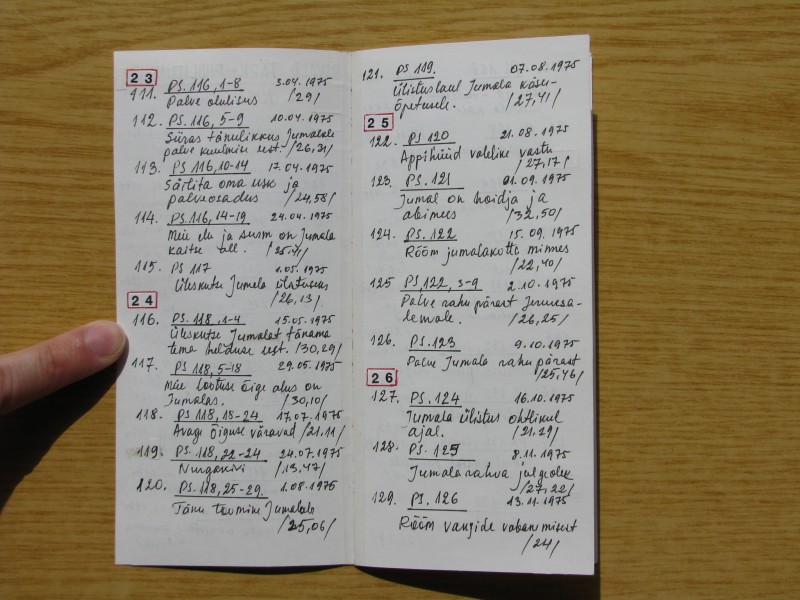 23
111. PS. 116, 1-8 3.04.1975
Palve olulisus /29/
112. PS. 116, 5-9 10.04.1975
Siiras tänulikkus Jumalale
palve kuulmise eest. /26,31/
113. PS 116,10-14 17.04.1975
Säilita oma usk ja
palveosadus /24,58/
114. PS. 116, 14-19 24.04.1975
Meie elu ja surm on Jumala
kaitse all. /25,41/
115. PS 117 1.05.1975
Üleskutse Jumala ülistusele
/26,13/
24
116. PS. 118, 1-4 15.05.1975
Üleskutse Jumalat tänama
tema helduse eest. /30,29/
117. PS 118, 5-18 29.05.1975
Meie lootuse õige alus on
Jumalas. /30,10/
118. PS 118, 18-24 17.07.1975
Avage õiguse väravad /21,11/
119. PS. 118, 22-24 24.07.1975
Nurgakivi /13,47/
120. PS. 118, 25-29. 1.08.1975
Tänu toomine Jumalale
/25,06/
121. PS 119. 07.08.1975
Ülistuslaul Jumala käsu-
õpetusele. /27,41/
25
122. PS 120 21.08.1975
Appihüüd valelike vastu
/27,17/
123. PS. 121 01.09.1975
Jumal on hoidja ja
abimees /32,50/
124. PS. 122 15.09.1975
Rõõm jumalakotta minnes
/22,40/
125 PS, 122, 3-9 2.10.1975
Palve rahu pärast Jeruusa-
lemale. /26,25/
126. PS. 123 9.10.1975
Palve Jumala rahu pärast
/25,46/
26
127. PS. 124 16.10.1975
Jumala ülistus ohtlikul
ajal. /21,29/
128. PS. 125 8.11.1975
Jumala rahva julgeolek
/27,22/
129. PS. 126 13.11.1975
Rõõm vangide vabanemisest
/24/